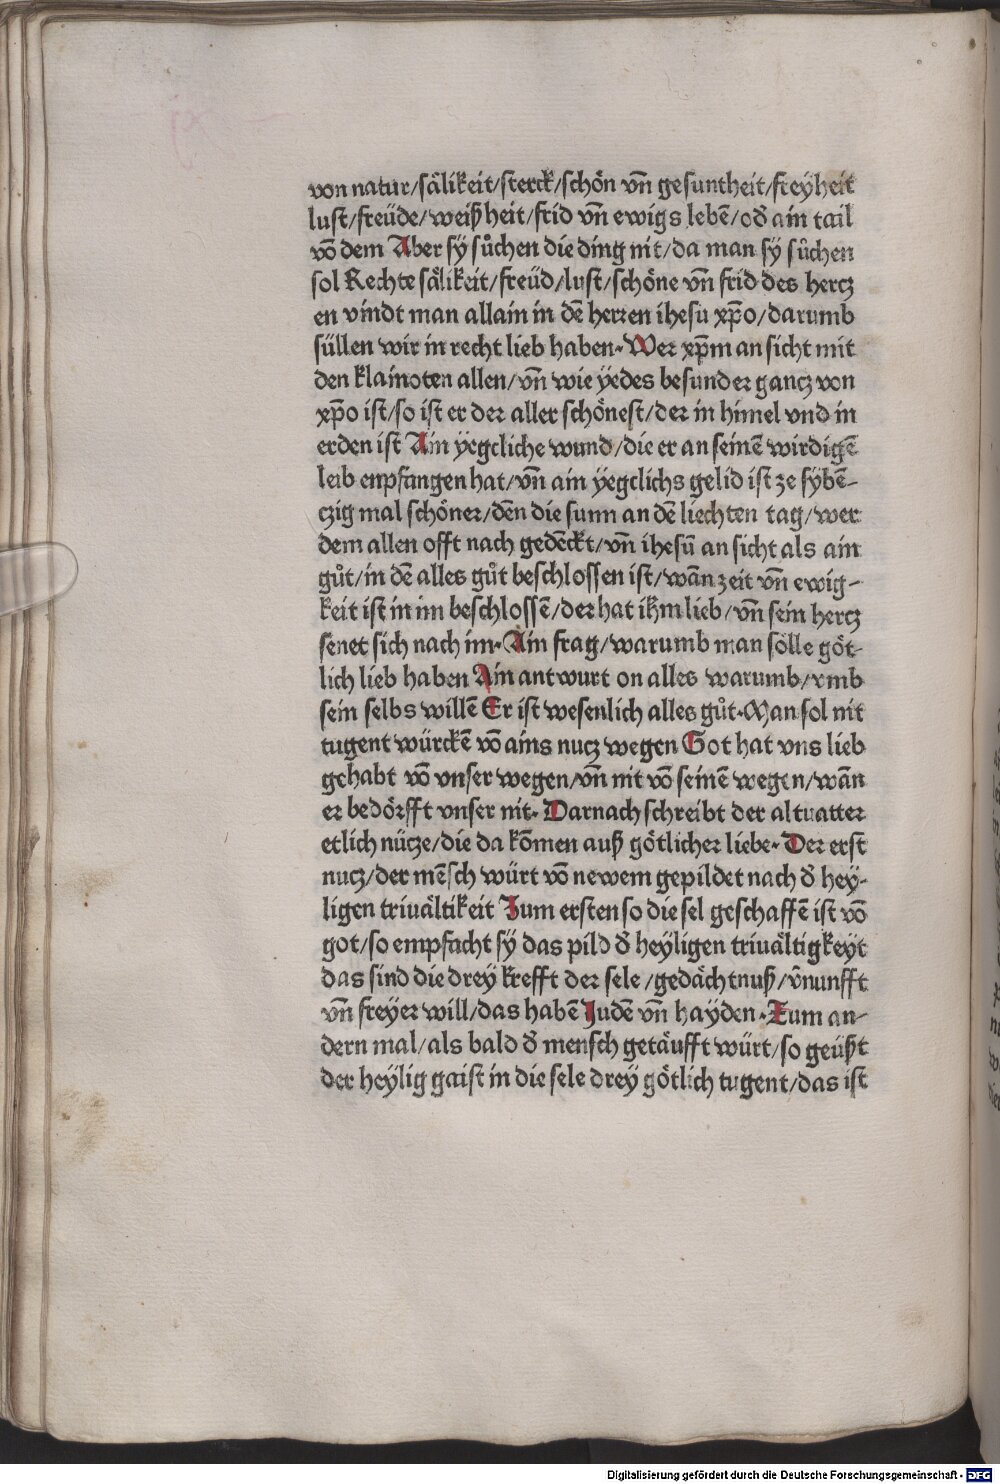 von natur/sålikeit/sterck/schön vn̄ gesuntheit/freÿheit
lust/freüde/weißheit/frid vn̄ ewigs lebē/od̛ ain tail
vō dem Aber sÿ sůchen die ding nit/da man sÿ sůchen
sol Rechte sålikeit/freüd/lust/schöne vn̄ frid des hercz
en vindt man allain in dē herren ihesu xp̄o/darumb
süllen wir in recht lieb haben. Wer xp̄m an sicht mit
den klainoten allen/vn̄ wie ÿedes besunder gancz von
xp̄o ist/so ist er der aller schönest/der in himel vnd in
erden ist Ain ÿegcliche wund/die er an seinē wirdigē
leib enpfangen hat/vn̄ ain ÿegclichs gelid ist ze sÿbē-
czig mal schöner/dēn die sunn an dē liechten tag/wer
dem allen offt nach gedēckt/vn̄ ihesū an sicht als ain
gůt/in dē alles gůt beschlossen ist/wān zeit vn̄ ewig-
keit ist in im beschlossē/der hat ihm lieb/vn̄ sein hercz
senet sich nach im. Ain frag/warumb man sölle göt-
lich lieb haben Ain antwurt on alles warumb/vmb
sein selbs willē Er ist wesenlich alles gůt. Man sol nit
tugent würckē vō ains nucz wegen Got hat vns lieb
gehabt vō vnser wegen/vn̄ nit vō seinē wegen/wān
er bedörfft vnser nit. Darnach schreibt der altuatter
etlich nücze/die da kōmen auß götlicher liebe. Der erst
nucz/der mēsch würt vō newem gepildet nach d̛ heÿ-
ligen triuåltikeit Zum ersten so die sel geschaffē ist vō
got/so empfacht sÿ das pild d̛ heÿligen triuåltigkeÿt
das sind die dreÿ krefft der sele/gedåchtnuß/v̄nunfft
vn̄ freÿer will/das habē Judē vn̄ haÿden. Zum an-
dern mal/als bald d̛ mensch getåufft würt/so geüßt
der heÿlig gaist in die sele dreÿ götlich tugent/das ist
Digitalisierung gefördert durch die Deutsche Forschungsgemeinschaft - DFG